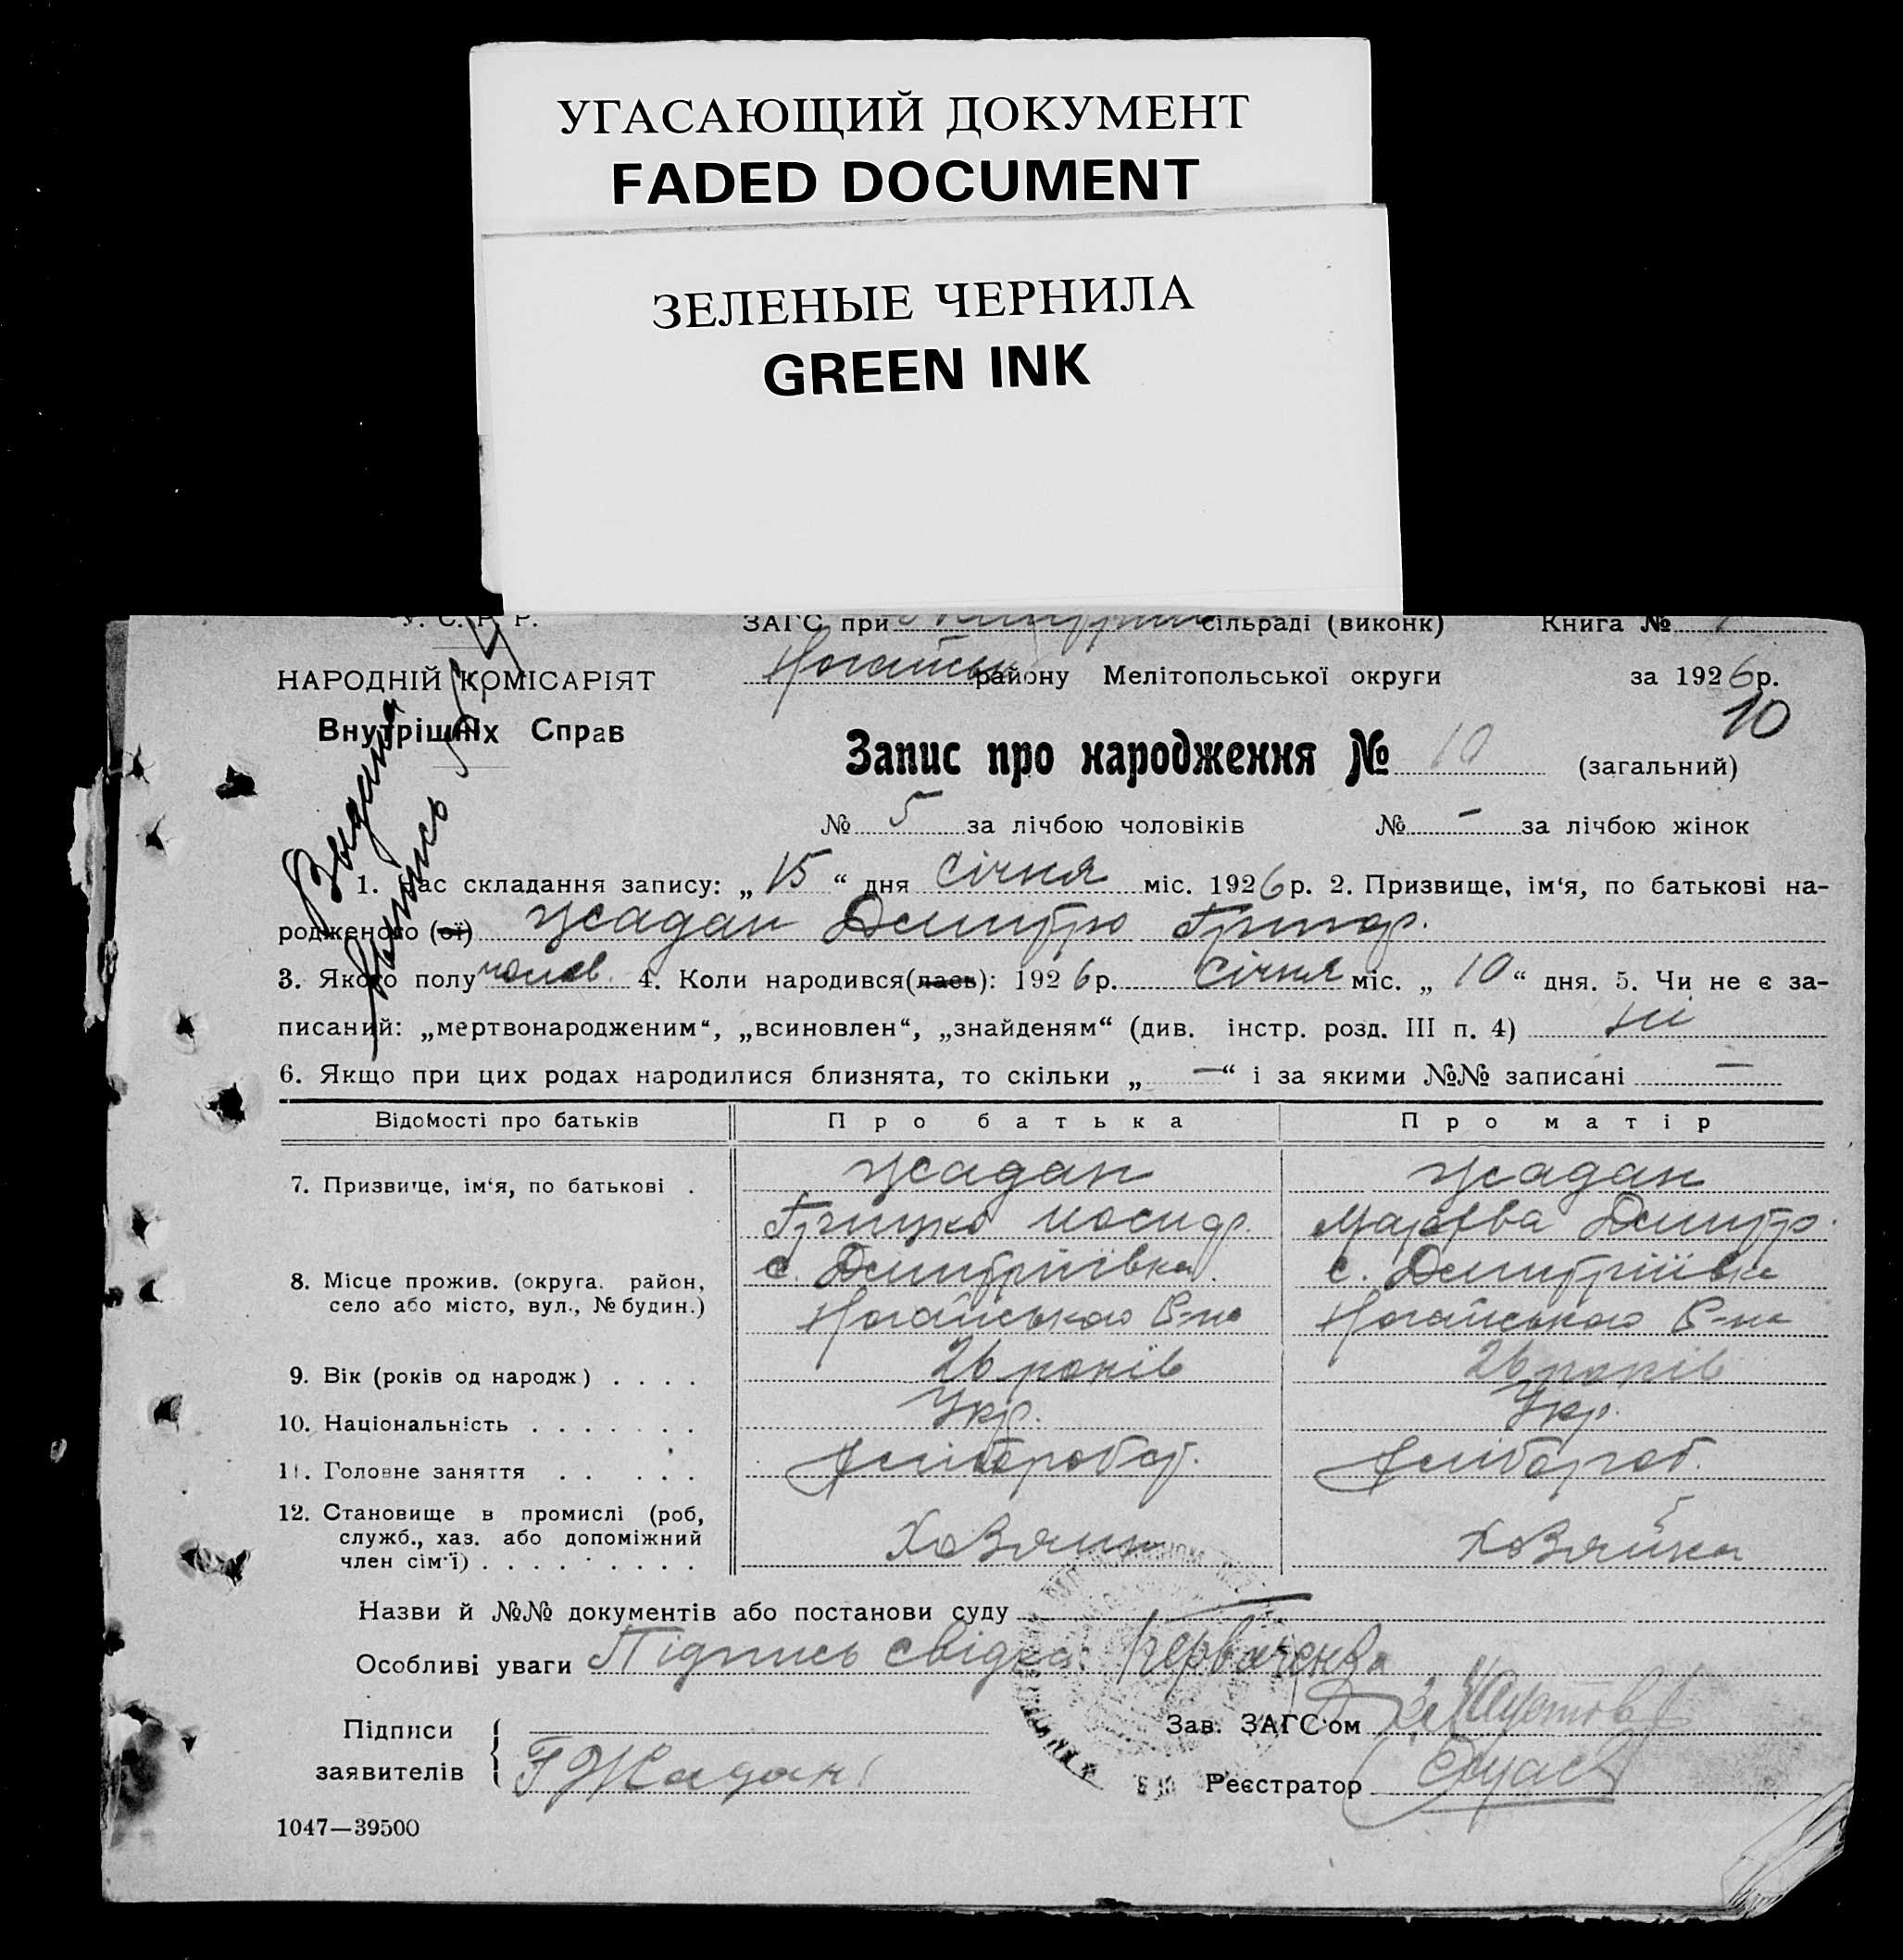 УГАСАЮЩИЙ ДОКУМЕНТ
FADED DOCUMENT
ЗЕЛЕНЫЕ ЧЕРНИЛА
GREEN INK
У. С. Р. Р.
ЗАГС при сільраді (виконк) Книга №
НАРОДНІЙ КОМІСАРІЯТ
району Мелітопольської округи за 1926 р.
Внутрішніх Справ
10
Запис про народження № 10 (загальний)
№ 5 за лічбою чоловіків № — за лічбою жінок
Выдана
выпись
1. Час складання запису: „15“ дня Січня міс. 1926 р. 2. Призвище, ім‘я, по батькові на-
родженого (ої) Жадан Дмитро Григор.
3. Якого полу чолов. 4. Коли народився(лась): 1926 р. Січня міс. „10“ дня. 5. Чи не є за-
писаний: „мертвонародженим“, „всиновлен“, „знайденям“ (див. інстр. розд. III п. 4) ні
6. Якщо при цих родах народилися близнята, то скільки „—“ і за якими №№ записані —
Відомості про батьків Про батька Про матір
7. Призвище, ім‘я, по батькові . Жадан Жадан
Грицко Иосиф. Марфва Дмитр.
8. Місце прожив. (округа. район, с. Дмитріївка. с. Дмитріївка
село або місто, вул., № будин.) Ногайського Р-на Ногайського Р-на
9. Вік (років од народж.) . . . . 26 років 26 років
10. Національність . . . . . . . Укр. Укр.
11. Головне заняття . . . . . Хліборобст. Хлібороб.
12. Становище в промислі (роб,
служб., хаз. або допоміжний Хозяин Хозяйка
член сім‘ї) . . . . . . . . .
Назви й №№ документів або постанови суду —
Особливі уваги Підпись свідка:
Підписи Зав. ЗАГС‘ом
заявителів Г Жадан Реєстратор
1047—39500